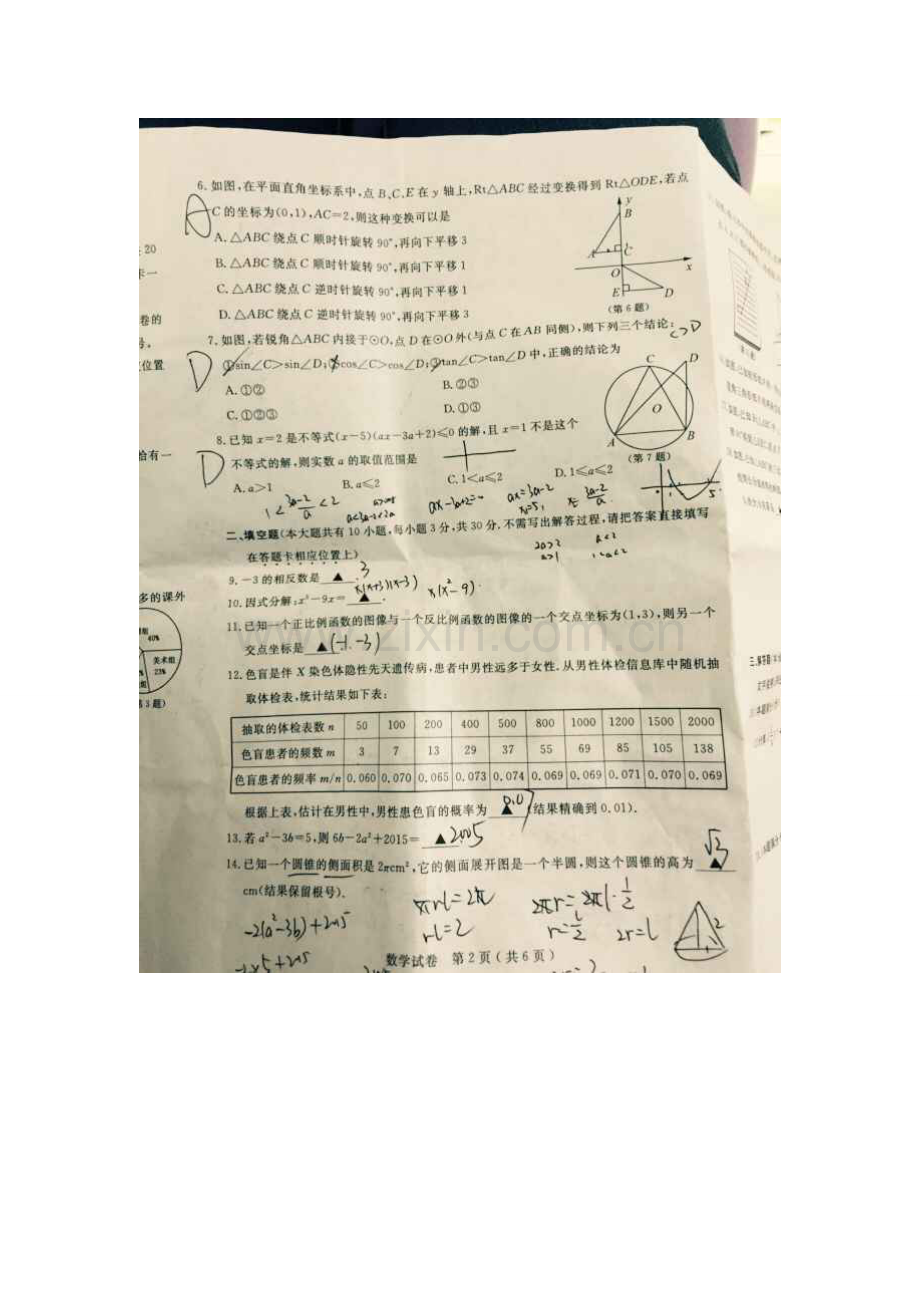 6.如图,在平面直角坐标系中,点 B、C、E 在 y 轴上,Rt△ABC 经过变换得到 Rt△ODE,若点
A
C 的坐标为(0,1),AC=2,则这种变换可以是
A.△ABC 绕点 C 顺时针旋转 90°,再向下平移 3
B.△ABC 绕点 C 顺时针旋转 90°,再向下平移 1
C.△ABC 绕点 C 逆时针旋转 90°,再向下平移 1
D.△ABC 绕点 C 逆时针旋转 90°,再向下平移 3
y
B
A
C
O
x
E
D
(第 6 题)
7.如图,若锐角△ABC 内接于⊙O,点 D 在⊙O 外(与点 C 在 AB 同侧),则下列三个结论:
C>D
D
①sin∠C>sin∠D;②cos∠C>cos∠D;③tan∠C>tan∠D 中,正确的结论为
A.①②
B.②③
C.①②③
D.①③
C
D
O
A
B
(第 7 题)
8.已知 x=2 是不等式(x-5)(ax-3a+2)≤0 的解,且 x=1 不是这个
D
不等式的解,则实数 a 的取值范围是
A.a>1
B.a≤2
C.1<a≤2
D.1≤a≤2
1<(3a-2)/a<2
a<3a-2<2a
ax-3a+2=0
ax=3a-2
x=5,
x=(3a-2)/a
1
5
2a>2
a>1
a<2
1<a<2
二、填空题(本大题共有 10 小题,每小题 3 分,共 30 分.不需写出解答过程,请把答案直接填写
在答题卡相应位置上)
9.-3 的相反数是 ▲ . 3
10.因式分解:x³-9x= ▲ . x(x+3)(x-3) x(x²-9).
11.已知一个正比例函数的图像与一个反比例函数的图像的一个交点坐标为(1,3),则另一个
交点坐标是 ▲ (-1,-3)
www.zixin.com.cn
12.色盲是伴 X 染色体隐性先天遗传病,患者中男性远多于女性.从男性体检信息库中随机抽
取体检表,统计结果如下表:
抽取的体检表数 n 50 100 200 400 500 800 1000 1200 1500 2000
色盲患者的频数 m 3 7 13 29 37 55 69 85 105 138
色盲患者的频率 m/n 0.060 0.070 0.065 0.073 0.074 0.069 0.069 0.071 0.070 0.069
根据上表,估计在男性中,男性患色盲的概率为 ▲ 0.07 (结果精确到 0.01).
13.若 a²-3b=5,则 6b-2a²+2015= ▲ 2005
14.已知一个圆锥的侧面积是 2πcm²,它的侧面展开图是一个半圆,则这个圆锥的高为 ▲ √3
cm(结果保留根号).
-2(a²-3b)+2015
πrl=2π
rl=2
2πr=2πl·1/2
r=l/2
2r=l
2
1
-2×5+2015
数学试卷 第 2 页(共 6 页)
20
卡一
卷的
号,
位置
恰有一
多的课外
组
40%
美术组
23%
组
第 3 题)